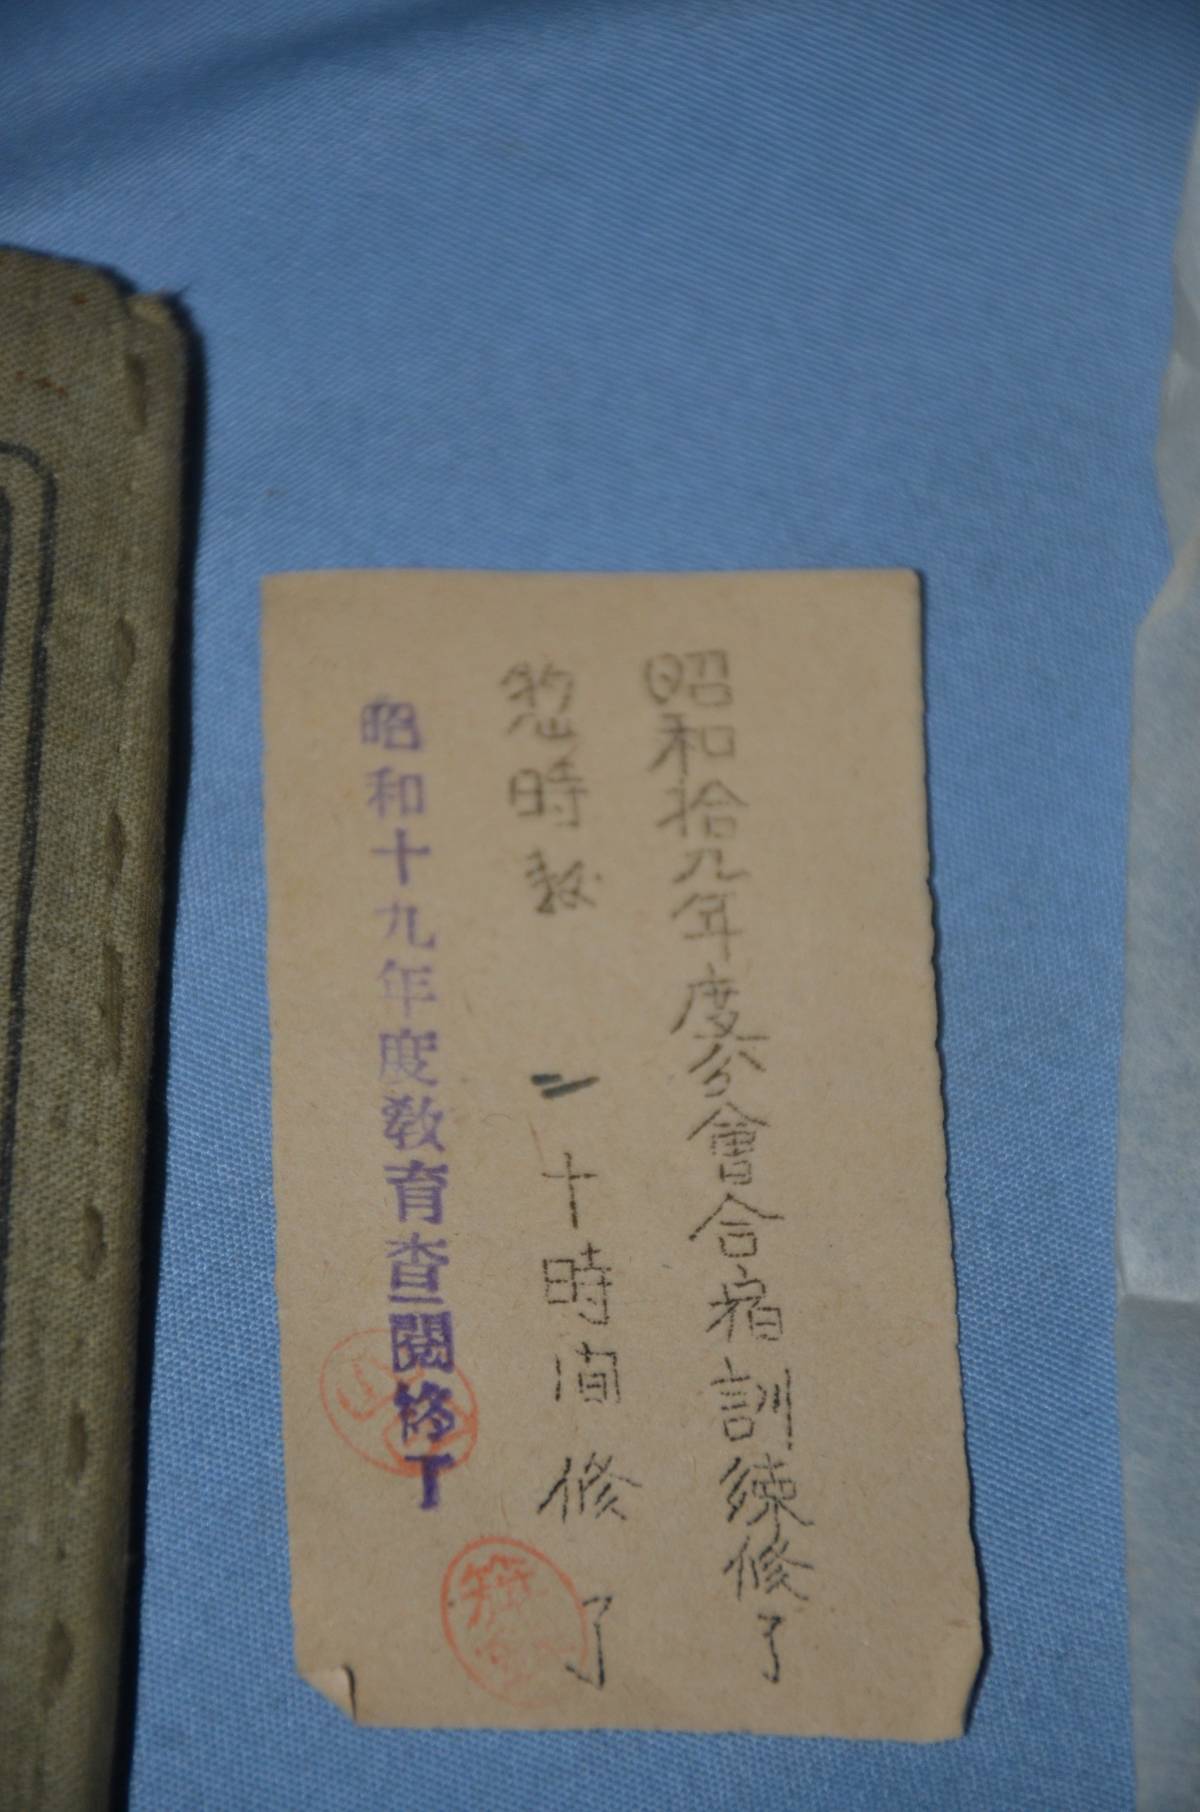 昭和拾九年度分會合宿訓練修了
惣時数 二十時間修了
昭和十九年度教育查閲修了